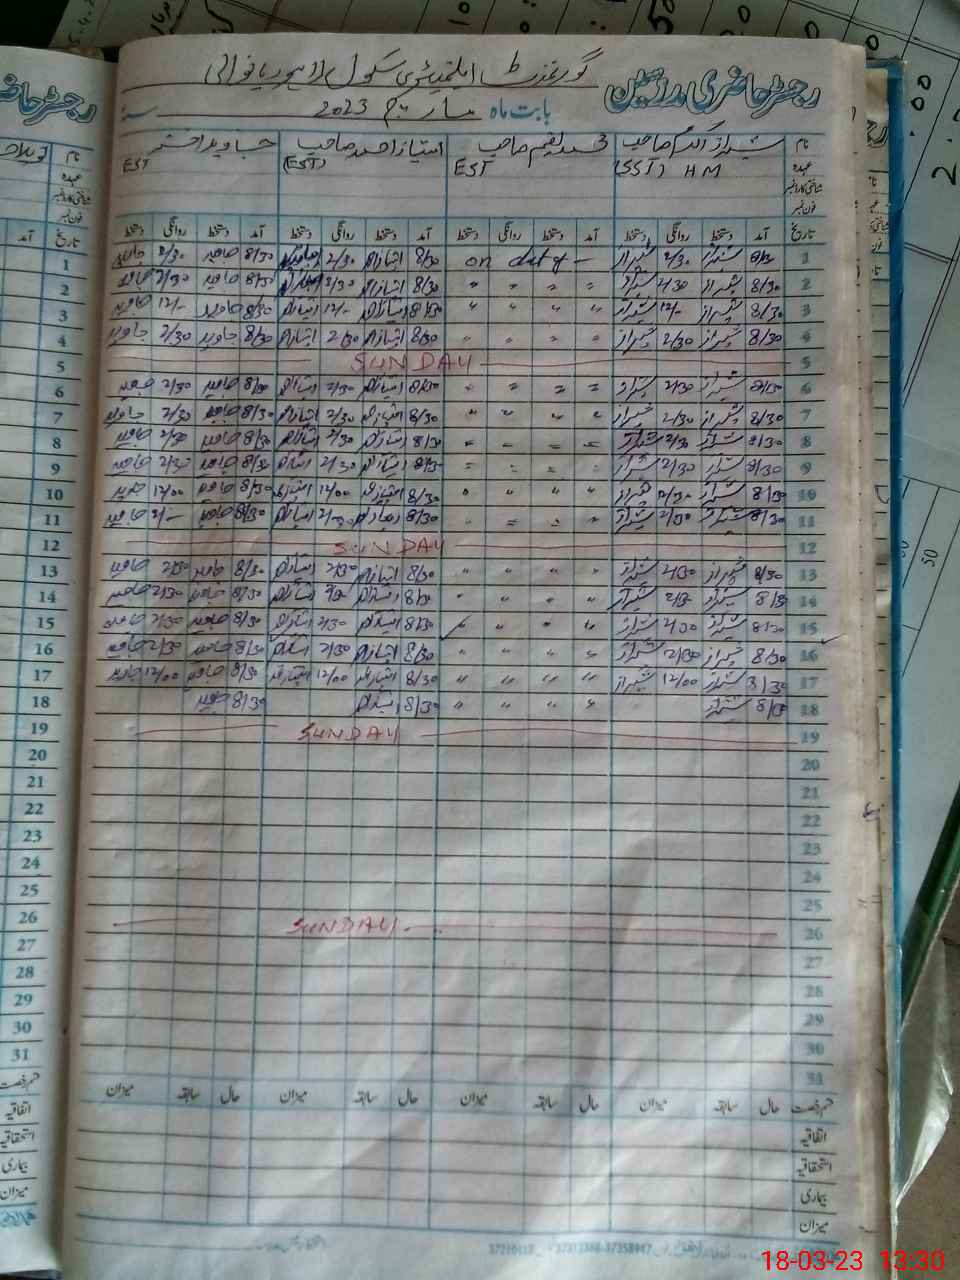 گورنمنٹ ایلیمنٹری سکول لاہوریانوالی
رجسٹر حاضری مدرسین
بابت ماہ مارچ 2023 سنہ
نام شیراز اکرم صاحب محمد نعیم صاحب امتیاز احمد صاحب جاوید اختر
عہدہ (SST) HM EST (EST) EST
شناختی کارڈ نمبر
فون نمبر
تاریخ آمد دستخط روانگی دستخط آمد دستخط روانگی دستخط آمد دستخط روانگی دستخط آمد دستخط روانگی دستخط
1 8/30 شیراز 2/30 شیراز on duty - 8/30 امتیاز 2/30 8/30 جاوید 2/30 جاوید
2 8/30 شیراز 2/30 شیراز " " " " 8/30 امتیاز 2/30 امتیاز 8/30 جاوید 2/30 جاوید
3 8/30 شیراز 12/- شیراز " " " " 8/30 امتیاز 12/- امتیاز 8/30 جاوید 12/- جاوید
4 8/30 شیراز 2/30 شیراز " " " " 8/30 امتیاز 2/30 امتیاز 8/30 جاوید 2/30 جاوید
5 SUNDAY
6 8/30 شیراز 2/30 شیراز " " " " 8/30 امتیاز 2/30 امتیاز 8/30 جاوید 2/30 جاوید
7 8/30 شیراز 2/30 شیراز " " " " 8/30 امتیاز 2/30 امتیاز 8/30 جاوید 2/30 جاوید
8 8/30 شیراز 2/30 شیراز " " " " 8/30 امتیاز 2/30 امتیاز 8/30 جاوید 2/30 جاوید
9 8/30 شیراز 2/30 شیراز " " " " 8/30 امتیاز 2/30 امتیاز 8/30 جاوید 2/30 جاوید
10 8/30 شیراز شیراز " " " " 8/30 امتیاز 12/00 امتیاز 8/30 جاوید 12/00 جاوید
11 8/30 شیراز 2/30 شیراز " " " " 8/30 امتیاز امتیاز 8/30 جاوید 2/- جاوید
12 SUNDAY
13 8/30 شیراز 2/30 شیراز " " " " 8/30 امتیاز 2/30 امتیاز 8/30 جاوید 2/30 جاوید
14 8/30 شیراز 2/30 شیراز " " " " 8/30 امتیاز 2/30 امتیاز 8/30 جاوید 2/30 جاوید
15 8/30 شیراز 2/30 شیراز " " " " 8/30 امتیاز 2/30 امتیاز 8/30 جاوید 2/30 جاوید
16 8/30 شیراز 2/30 شیراز " " " " 8/30 امتیاز 2/30 امتیاز 8/30 جاوید 2/30 جاوید
17 8/30 شیراز 12/00 شیراز " " " " 8/30 امتیاز 12/00 امتیاز 8/30 جاوید 12/00 جاوید
18 8/30 شیراز " " " " 8/30 امتیاز 8/30 جاوید
19 SUNDAY
20
21
22
23
24
25
26 SUNDAY
27
28
29
30
31
قسم رخصت حال سابقہ میزان حال سابقہ میزان حال سابقہ میزان حال سابقہ میزان
اتفاقیہ
استحقاقیہ
بیماری
میزان
18-03-23 13:30